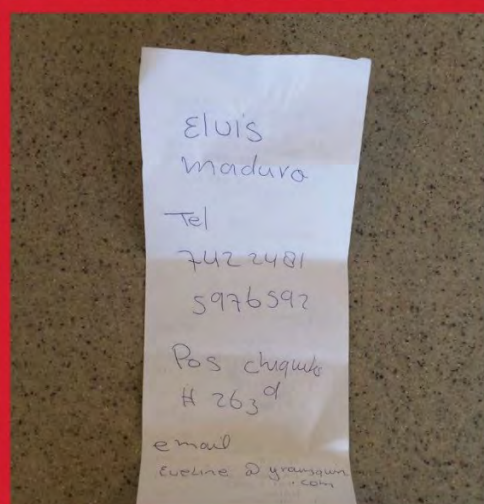 Elvis
Maduro
Tel
742 2481
5976592
Pos chiquito
# 263 d
email
Eveline @
.com